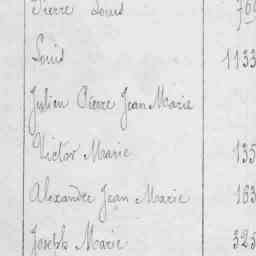 Pierre Louis 76
Louis 1133
Julien Pierre Jean Marie
Victor Marie 135
Alexandre Jean Marie 163
Joseph Marie 325